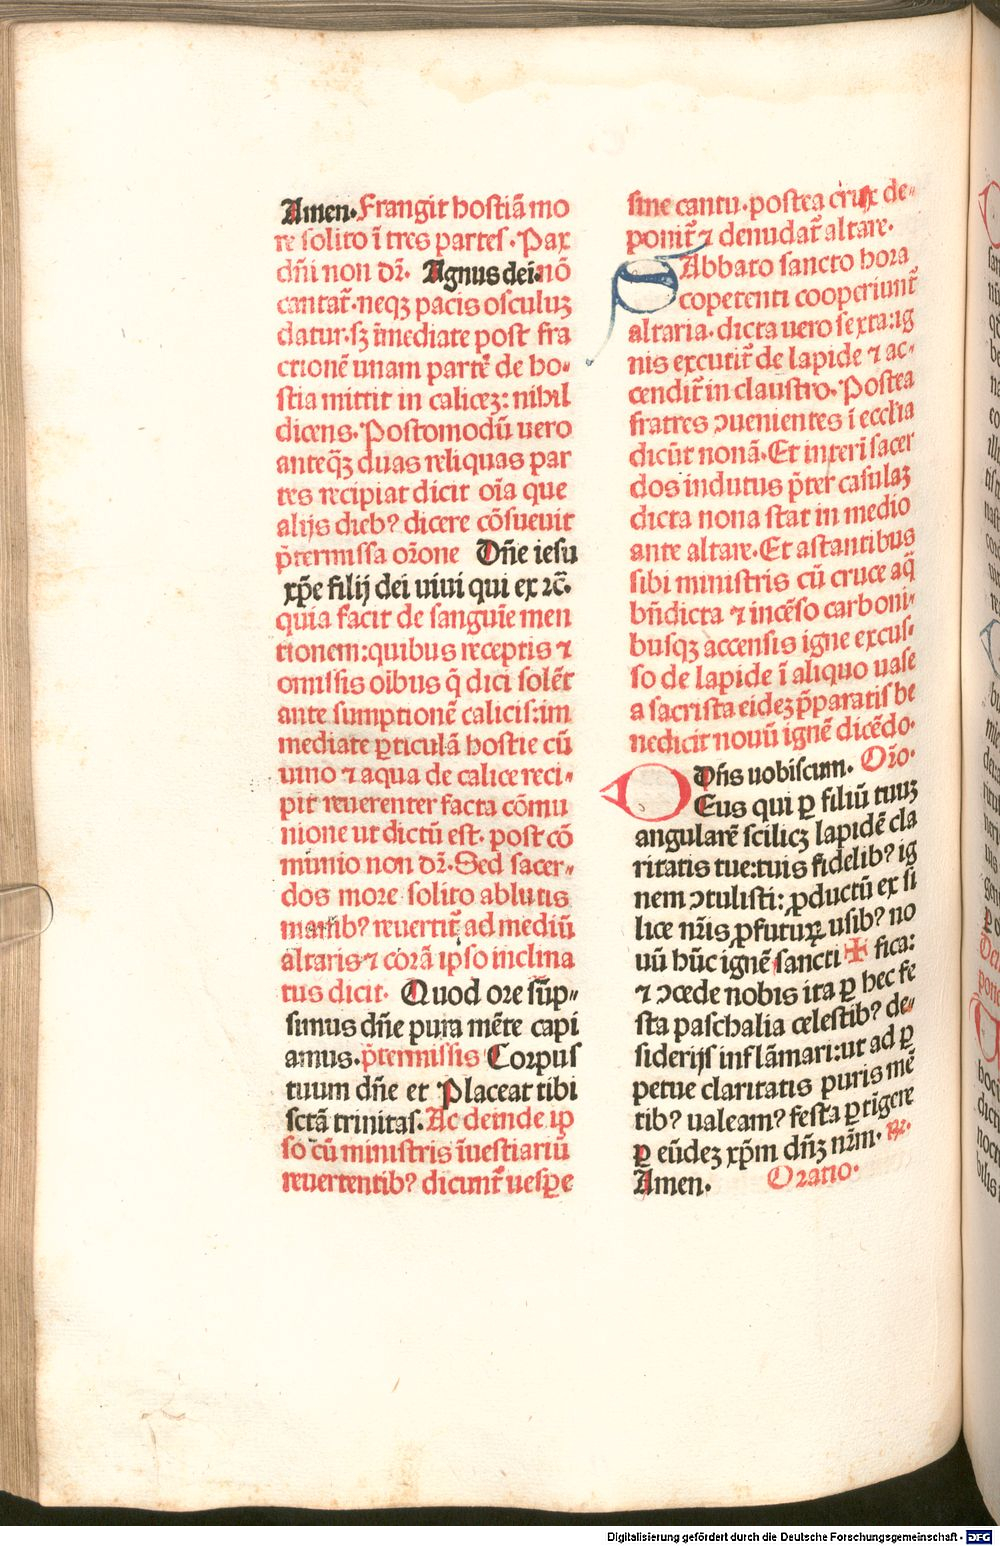 Amen. Frangit hostiā mo
re solito ī tres partes. Pax
dn̄i non dr̄. Agnus dei. nō
cantat᷑. neqꝫ pacis osculuꝫ
datur. sꝫ īmediate post fra
ctionē unam partē de ho-
stia mittit in caliceꝫ: nihil
dicens. Postomodū uero
anteqꝫ̄ duas reliquas par
tes recipiat dicit oīa que
alijs dieb? dicere cōsueuit
p̄termissa or̄one Dn̄e iesu
xp̄e filij dei uiui qui ex ꝛc̄.
quia facit de sanguīe men
tionem: quibus receptis ⁊
omissis oībus q̄ dici solēt
ante sumptionē calicis: im
mediate ꝑticulā hostie cū
uino ⁊ aqua de calice reci-
pit reuerenter facta cōmu
nione ut dictū est. post cō
munio non dr̄. Sed sacer-
dos more solito ablutis
manib? reuertit᷑ ad mediū
altaris ⁊ corā ipso inclina
tus dicit. Quod ore sūp-
simus dn̄e pura mēte capi
amus. p̄termissis Corpus
tuum dn̄e et Placeat tibi
sctā trinitas. Ac deinde ip
so cū ministris īuestiariū
reuertentib? dicunt᷑ uesꝑe
sine cantu. postea crux de-
ponit᷑ ⁊ denudat᷑ altare.
SAbbato sancto hora
copetenti cooperiunt᷑
altaria. dicta uero sexta: ig
nis excutit᷑ de lapide ⁊ ac-
cendit᷑ in claustro. Postea
fratres ꝯuenientes ī ecclīa
dicūt nonā. Et interī sacer
dos indutus p̄ter casulaꝫ
dicta nona stat in medio
ante altare. Et astantibus
sibi ministris cū cruce aq̄
bn̄dicta ⁊ incēso carboni-
busqꝫ accensis igne excus-
so de lapide ī aliquo uase
a sacrista eideꝫ p̄paratis be
nedicit nouū ignē dicēdo.
Dn̄s uobiscum. Or̄o.
DEus qui ꝑ filiū tuuꝫ
angularē scilicꝫ lapidē cla
ritatis tue: tuis fidelib? ig
nem ꝯtulisti: ꝓductū ex si
lice nr̄is ꝓfuturꝝ usib? no
uū hūc ignē sancti ✠ fica:
⁊ ꝯcede nobis ita ꝑ hec fe
sta paschalia celestib? de-
siderijs inflāmari: ut ad ꝑ
petue claritatis puris mē
tib? ualeam? festa ꝑtigere
ꝑ eūdeꝫ xp̄m dn̄ꝫ nr̄m. ℟.
Amen. Oratio.
Digitalisierung gefördert durch die Deutsche Forschungsgemeinschaft - DFG